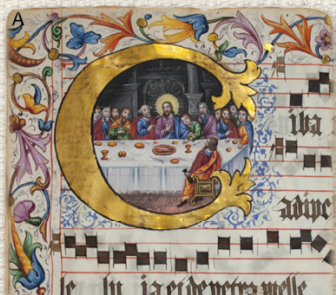 A
Ciba
adipe
le lu ia et de petra melle